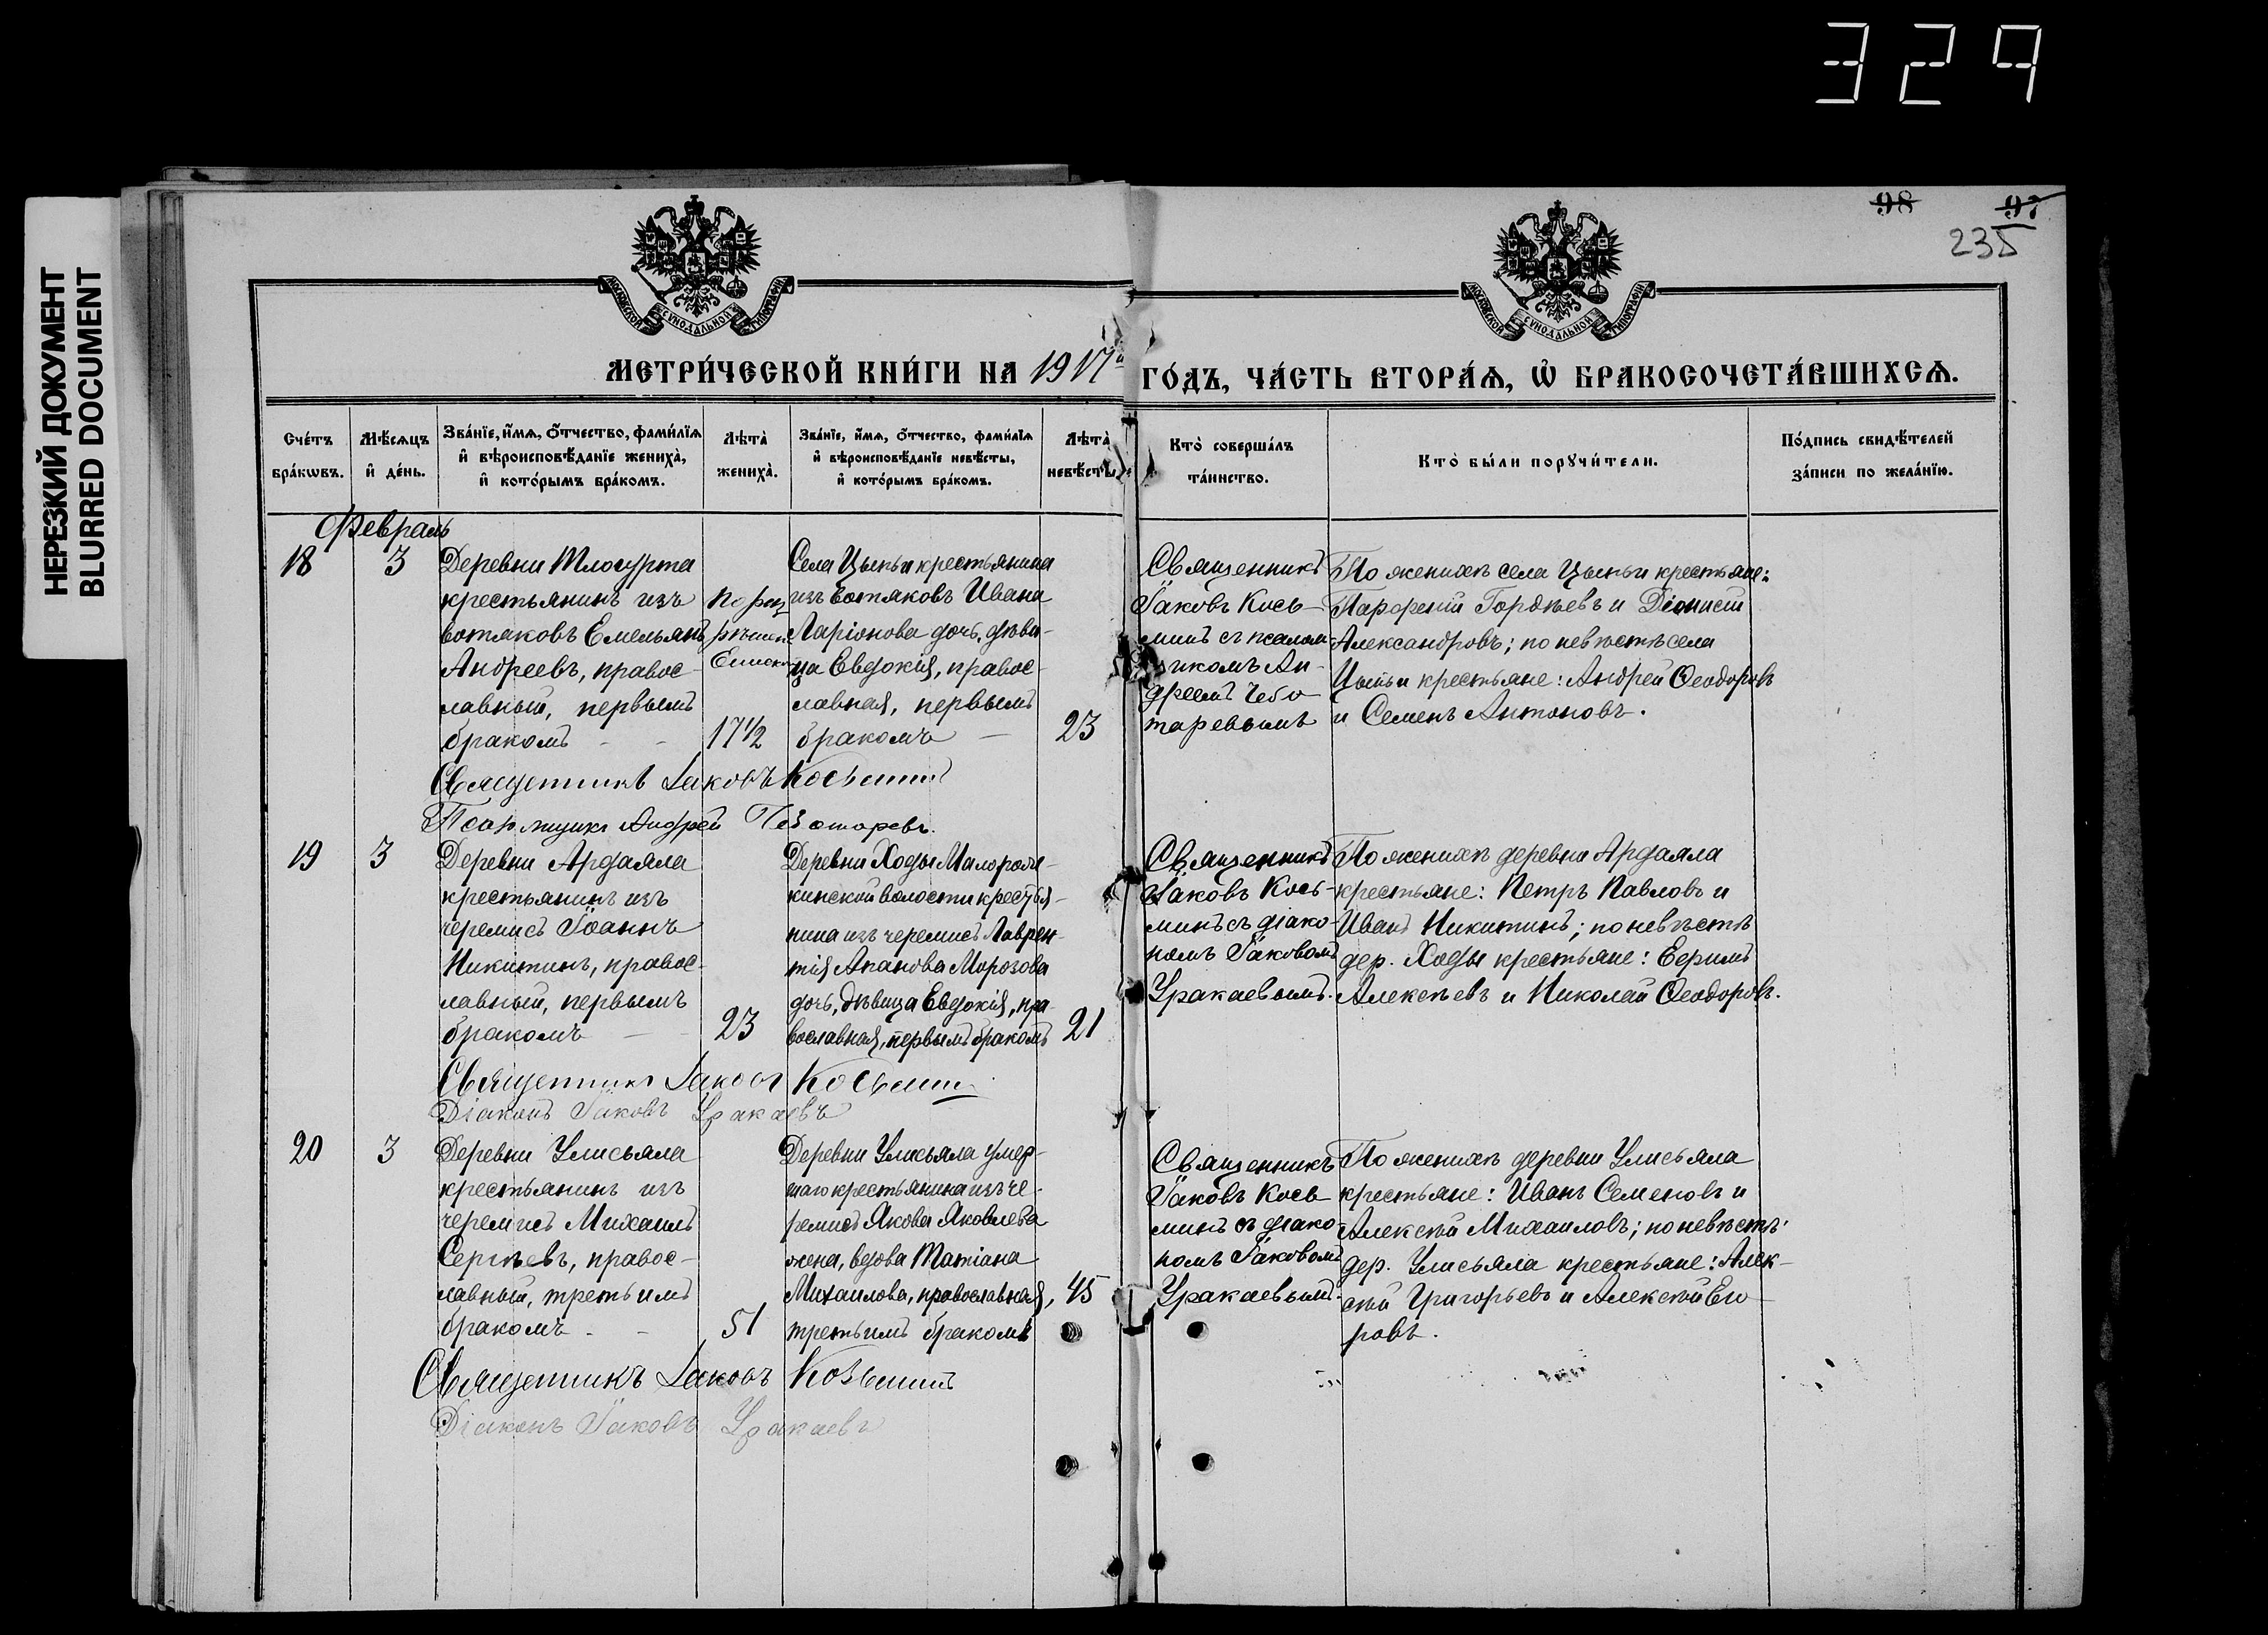 329
НЕРЕЗКИЙ ДОКУМЕНТ
BLURRED DOCUMENT
98 97
235
МОСКОВСКОЙ СУНОДАЛЬНОЙ ТИПОГРАФІИ
МОСКОВСКОЙ СУНОДАЛЬНОЙ ТИПОГРАФІИ
МЕТРИ́ЧЕСКОЙ КНИ́ГИ НА 1917й ГО́ДЪ, ЧА́СТЬ ВТОРА́Ѧ, Ѡ҆ БРАКОСОЧЕТА́ВШИХСѦ.
Сче́тъ
бра́кѡвъ.
Мѣ́сѧцъ
и҆ де́нь.
Зва́нїе, и҆́мѧ, ѻ҆́тчество, фами́лїѧ
и҆ вѣроисповѣ́данїе жениха̀,
и҆ кото́рымъ бра́комъ.
Лѣта̀
жениха̀.
Зва́нїе, и҆́мѧ, ѻ҆́тчество, фами́лїѧ
и҆ вѣроисповѣ́данїе невѣ́сты,
и҆ кото́рымъ бра́комъ.
Лѣта̀
невѣ́сты.
Кто̀ соверша́лъ
та́инство.
Кто̀ бы́ли порꙋчи́тели.
По́дпись свидѣ́телей
за́писи по жела́нїю.
Февраль
18
3
Деревни
крестьянинъ изъ
вотяковъ Емельянъ
Андреевъ, правос-
лавный, первымъ
бракомъ
По раз
рѣшен
Епископ
17½
Села Цыпьи крестьянина
изъ вотяковъ Ивана
Ларіонова дочь, дѣви-
ца Евдокія, правос-
лавная, первымъ
бракомъ
23
Священникъ
Іаковъ Кось-
минъ съ псалом-
щикомъ Ан-
дреемъ Чебо-
таревымъ
По женихѣ села Цыпьи крестьяне:
Парфеній Гордѣевъ и Діонисій
Александровъ; по невѣстѣ села
Цыпьи крестьяне: Андрей Ѳеодоровъ
и Семенъ Антоновъ.
Священникъ Іаковъ Косьминъ
Псаломщикъ Андрей Чеботаревъ.
19
3
Деревни Ардаяла
крестьянинъ изъ
черемисъ Іоаннъ
Никитинъ, правос-
лавный, первымъ
бракомъ
23
Деревни Ходы Малорожи-
кинской волости крестья-
нина изъ черемисъ Лаврен-
тія Апанова Морозова
дочь, дѣвица Евдокія, пра-
вославная, первымъ бракомъ
21
Священникъ
Іаковъ Кось-
минъ съ діако-
номъ Іаковомъ
Уракаевымъ.
По женихѣ деревни Ардаяла
крестьяне: Петръ Павловъ и
Иванъ Никитинъ; по невѣстѣ
дер. Ходы крестьяне: Ефримъ
Алексѣевъ и Николай Ѳеодоровъ.
Священникъ Іаковъ Косьминъ
Діаконъ Іаковъ Уракаевъ
20
3
Деревни Улисьяла
крестьянинъ изъ
черемисъ Михаилъ
Сергѣевъ, правос-
лавный, третьимъ
бракомъ
51
Деревни Улисьяла умер-
шаго крестьянина изъ че-
ремисъ Якова Яковлева
жена, вдова Матіана
Михаилова, православная,
третьимъ бракомъ
45
Священникъ
Іаковъ Кось-
минъ съ діако-
номъ Іаковомъ
Уракаевымъ.
По женихѣ деревни Улисьяла
крестьяне: Иванъ Семеновъ и
Алексѣй Михаиловъ; по невѣстѣ
дер. Улисьяла крестьяне: Алек-
сѣй Григорьевъ и Алексѣй Его-
ровъ.
Священникъ Іаковъ Козьминъ
Діаконъ Іаковъ Уракаевъ